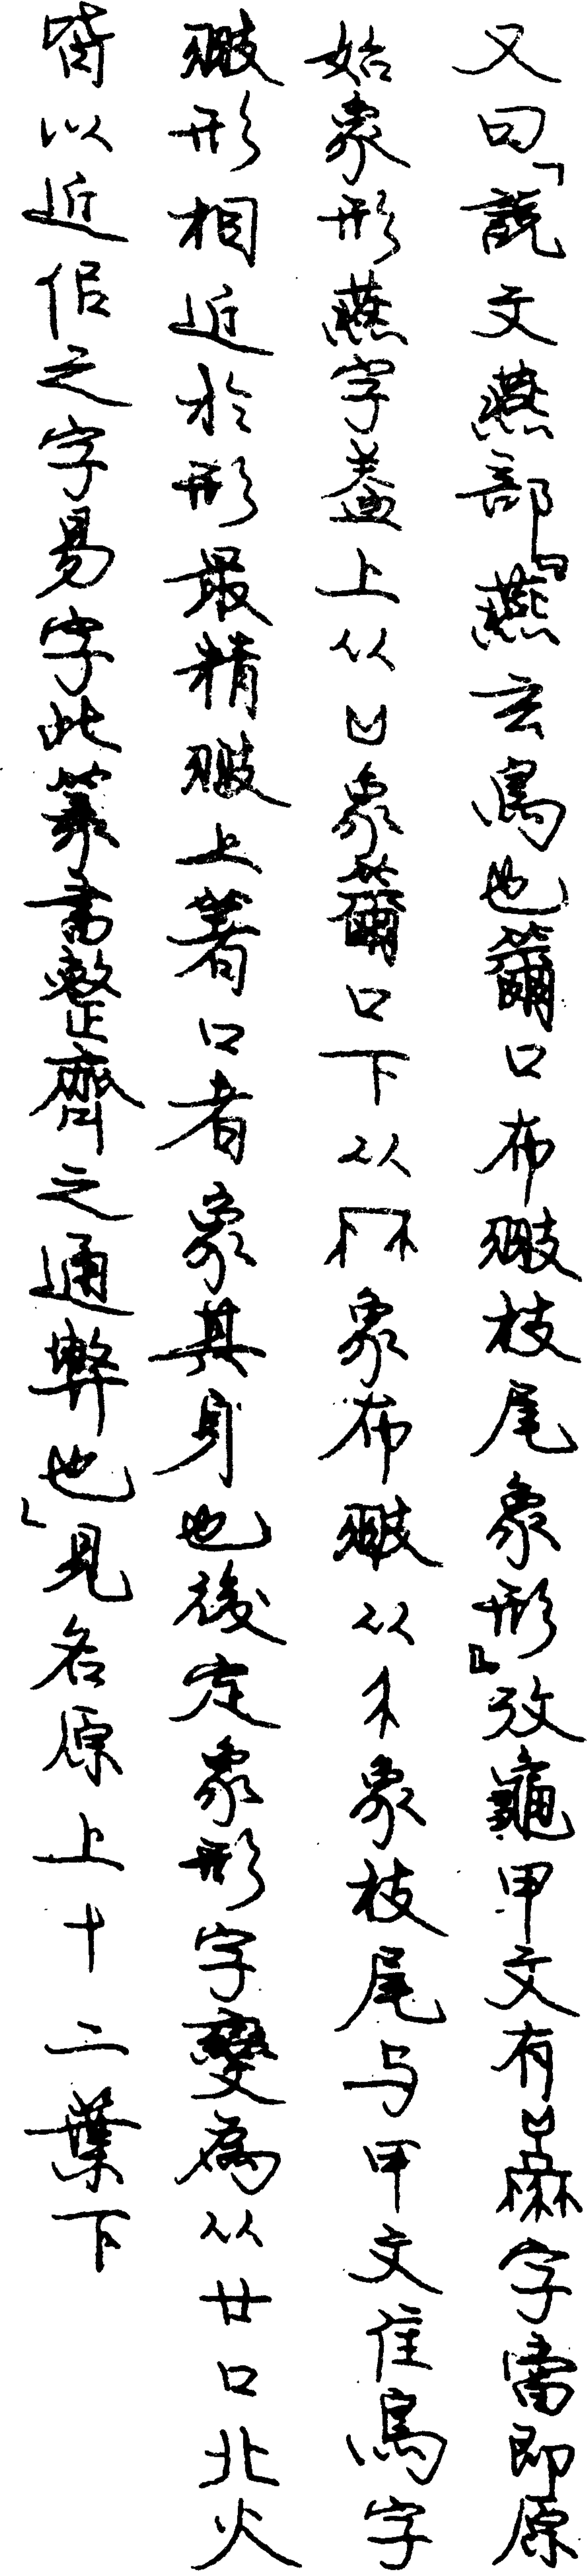 又曰「說文燕部『燕玄鳥也籋口布翄枝尾象形』攷龜甲文有字當即原
始象形燕字蓋上从凵象籋口下从象布翄从象枝尾与甲文隹鳥字
翄形相近於形最精翄上著口者象其身也後定象形字變為从廿口北火
皆以近佀之字易字此篆書整齊之通弊也」見名原上十二葉下